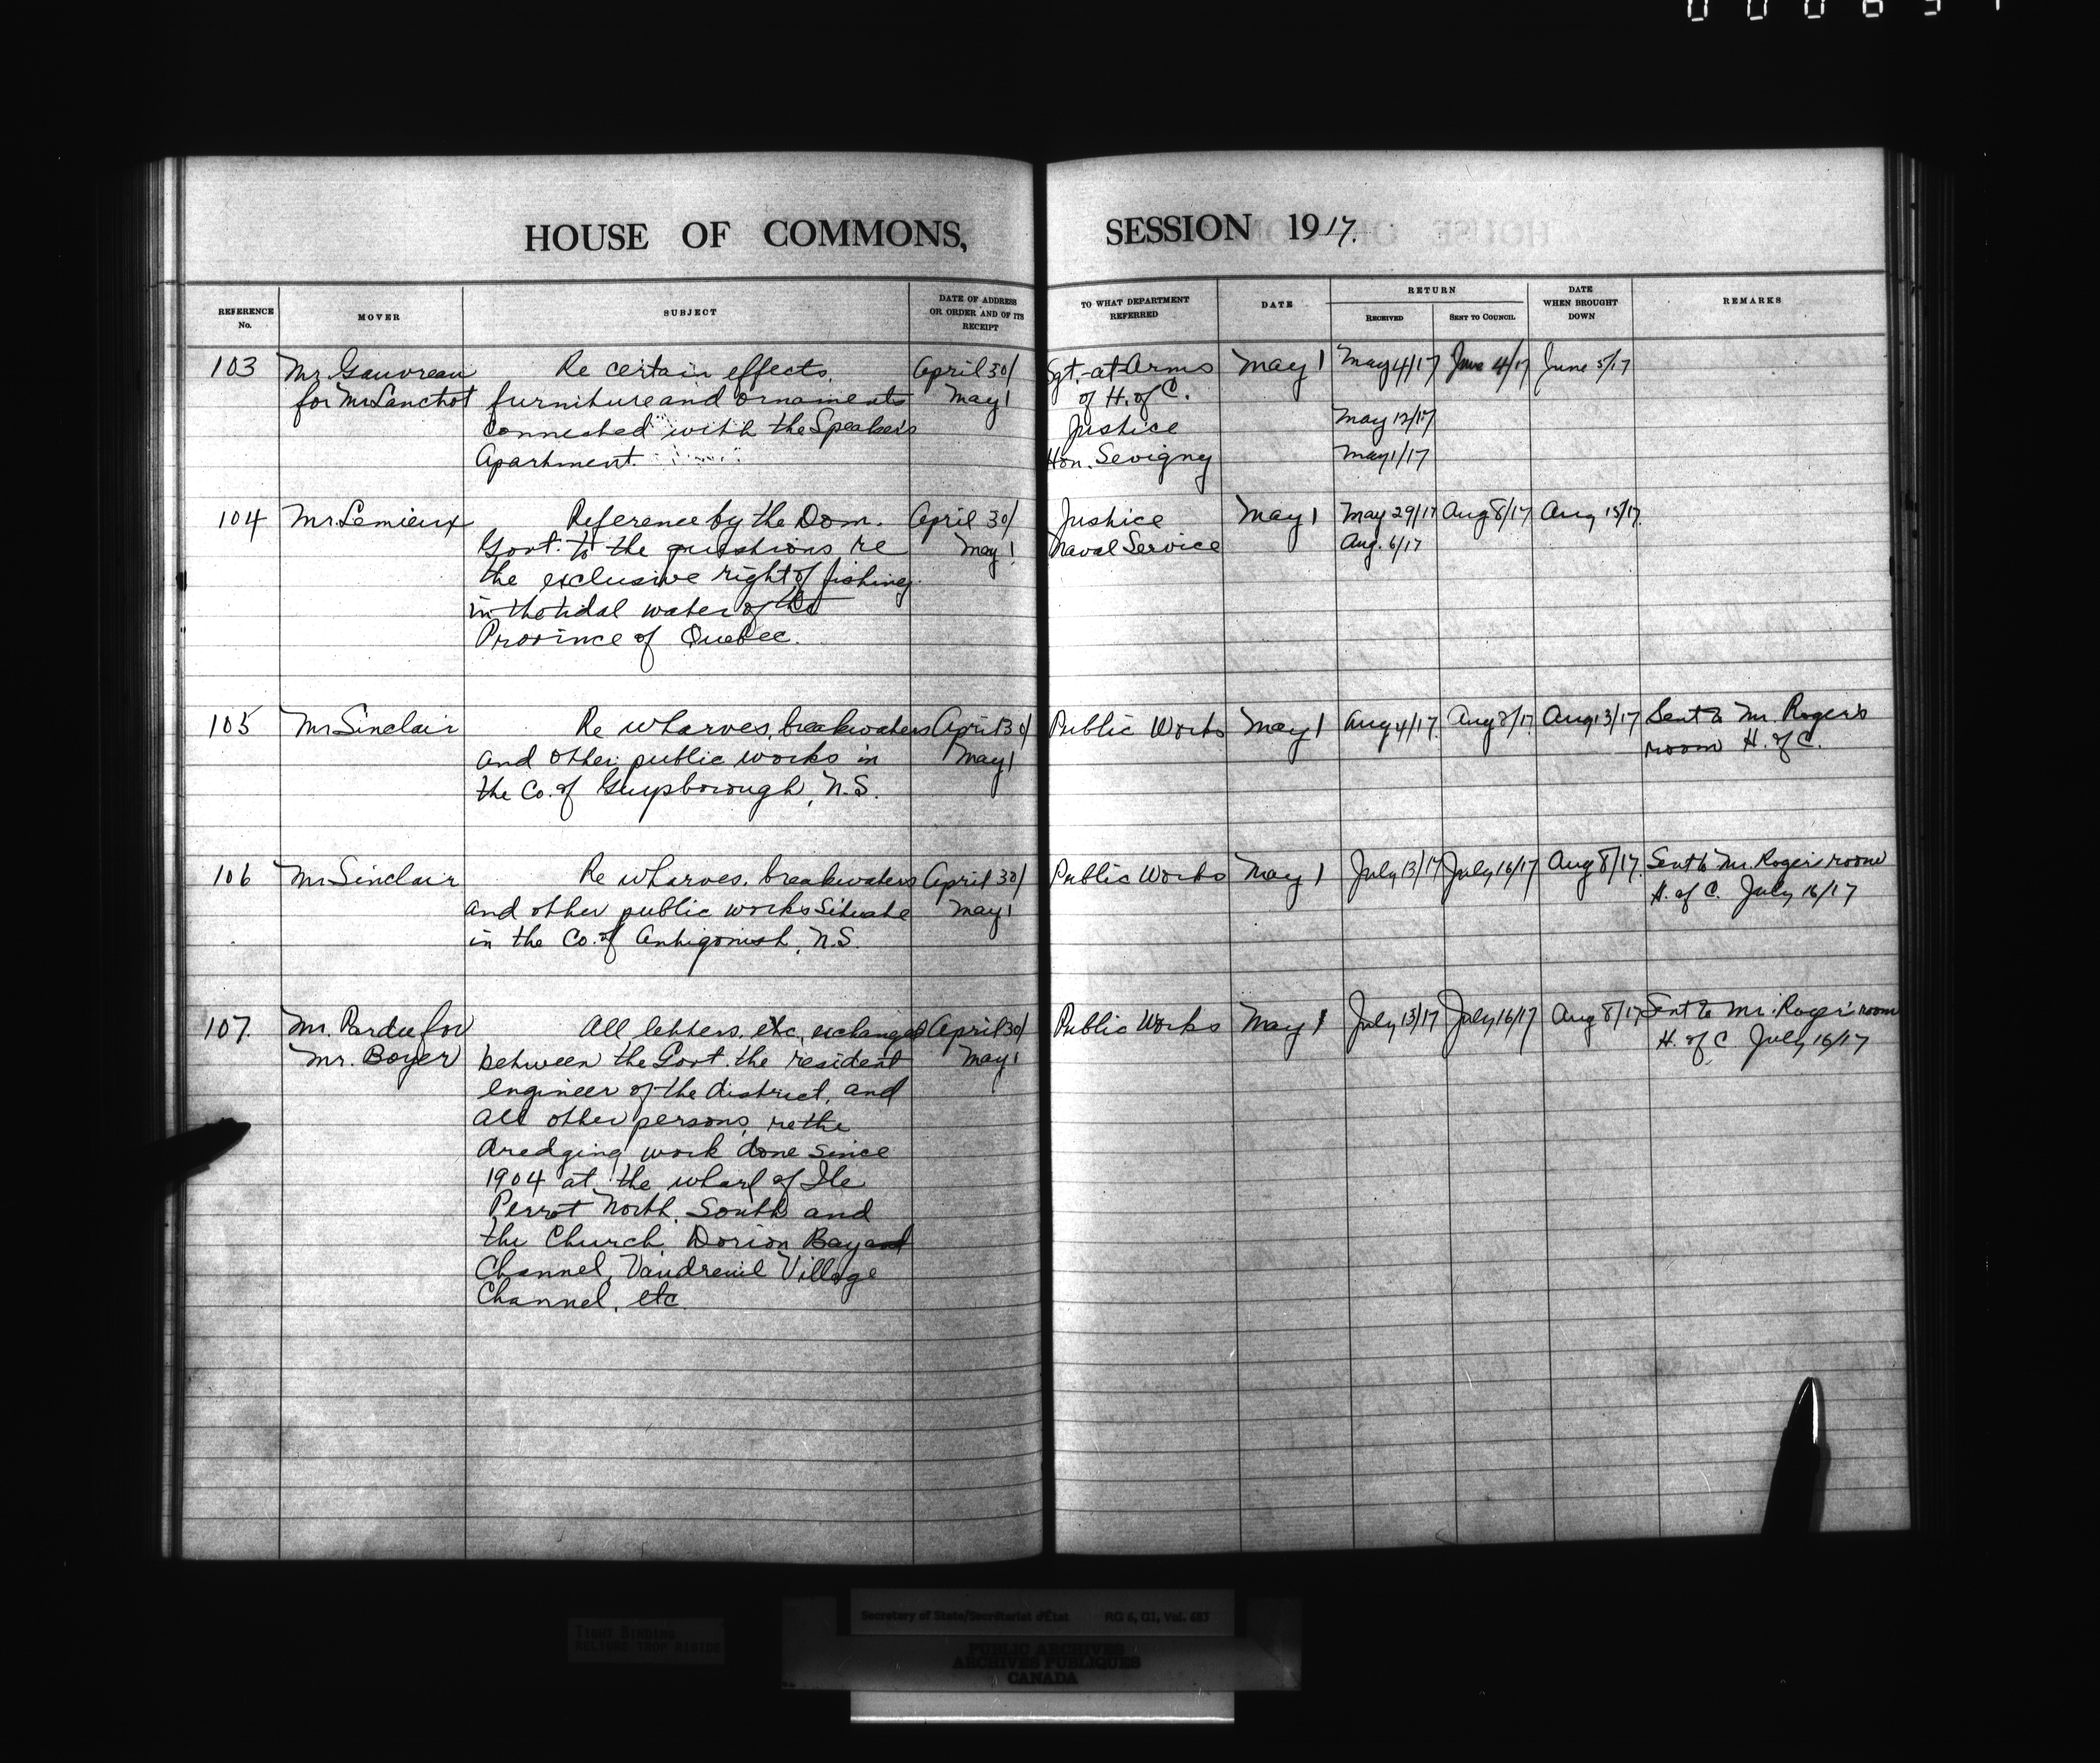 HOUSE OF COMMONS, SESSION 1917.
REFERENCE No.
MOVER
SUBJECT
DATE OF ADDRESS OR ORDER AND OF ITS RECEIPT
TO WHAT DEPARTMENT REFERRED
DATE
RETURN
RECEIVED
SENT TO COUNCIL
DATE WHEN BROUGHT DOWN
REMARKS
103 Mr Gauvreau Re certain effects, April 30/ Sgt.-at-Arms May 1 May 4/17 June 4/17 June 5/17
for Mr Lanctot furniture and ornaments May 1 of H. of C.
connected with the Speaker's Justice May 12/17
Apartment. Hon. Sevigny May 1/17
104 Mr Lemieux Reference by the Dom. April 30/ Justice May 1 May 29/17 Aug 8/17 Aug 15/17
Govt. to the questions re May 1 Naval Service Aug. 6/17
the exclusive right of fishing
in the tidal water of the
Province of Quebec.
105 Mr Sinclair Re wharves, breakwaters April 30/ Public Works May 1 Aug 4/17 Aug 8/17 Aug 13/17 Sent to Mr. Roger's
and other public works in May 1 room H. of C.
the Co. of Guysborough, N.S.
106 Mr Sinclair Re wharves, breakwaters April 30/ Public Works May 1 July 13/17 July 16/17 Aug 8/17 Sent to Mr. Roger's room
and other public works situate May 1 H. of C. July 16/17
in the Co. of Antigonish, N.S.
107. Mr. Pardee for All letters, etc, exchanged April 30/ Public Works May 1 July 13/17 July 16/17 Aug 8/17 Sent to Mr. Roger's room
Mr. Boyer between the Govt. the resident May 1 H. of C July 16/17
engineer of the district, and
all other persons, re the
dredging work done since
1904 at the wharf of Ile
Perrot North, South and
the Church, Dorion Bay and
Channel, Vaudreuil Village
Channel, etc.
Secretary of State/Secrétariat d'État RG 6, G1, Vol. 683
TIGHT BINDING
RELIURE TROP RIGIDE
PUBLIC ARCHIVES
ARCHIVES PUBLIQUES
CANADA